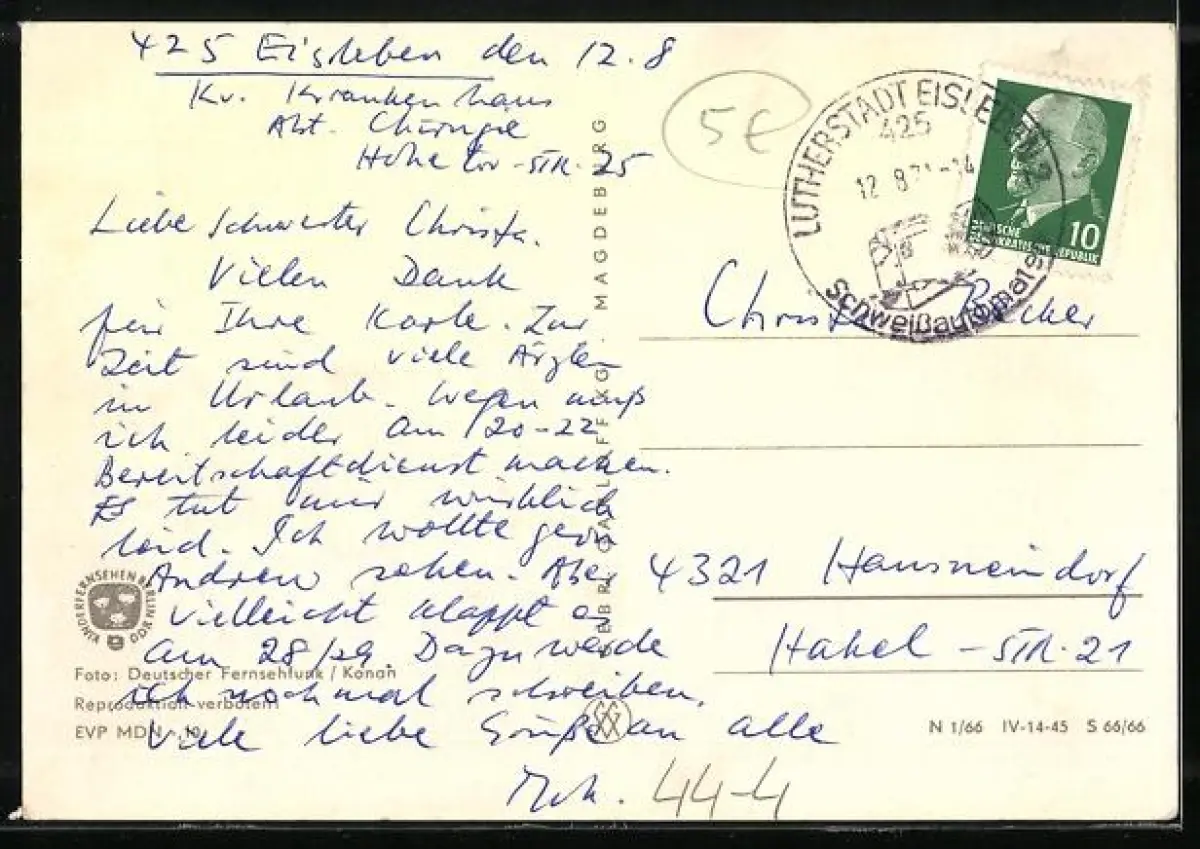 425 Eisleben den 12.8
Kr. Krankenhaus
Abt. Chirurgie
Hohetor-Str. 25
Liebe Schwester Christa.
Vielen Dank
für Ihre Karte. Zur
Zeit sind viele Ärzte
in Urlaub. Wegen muß
ich leider am 20-22
Bereitschaftdienst machen.
Es tut mir wirklich
leid. Ich wollte gern
Andrew sehen. Aber
vielleicht klappt es
am 28/29. Dazu werde
ich nochmal schreiben.
Viele liebe Grüße an alle
44-4
5€
LUTHERSTADT EISLEBEN 2
425
12.8.71-14
Schweißautomat
DEUTSCHE
DEMOKRATISCHE REPUBLIK
10
Becker
4321 Hausneindorf
Hakel-Str. 21
MAGDEBURG
KINDERFERNSEHEN BERLIN DDR
Foto: Deutscher Fernsehfunk / Konan
Reproduktion verboten
EVP MDN -.10
N 1/66 IV-14-45 S 66/66